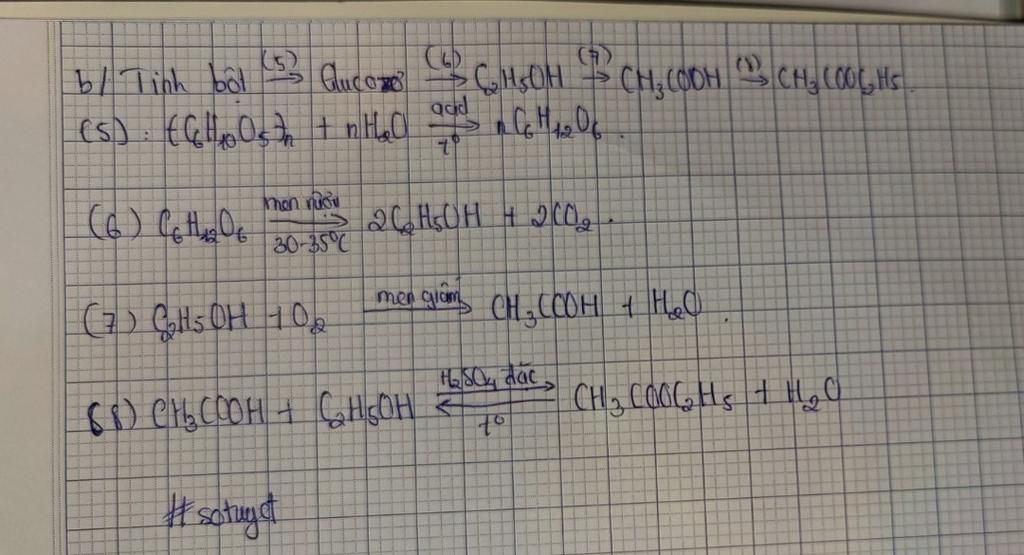 b/ Tinh bột (5)→ Glucozơ (6)→ C2H5OH (7)→ CH3COOH (8)→ CH3COOC2H5.
(5): (C6H10O5)n + nH2O acid→t° nC6H12O6.
(6) C6H12O6 men rượu→30-35°C 2C2H5OH + 2CO2.
(7) C2H5OH + O2 men giấm→ CH3COOH + H2O.
(8) CH3COOH + C2H5OH H2SO4 đặc⇌t° CH3COOC2H5 + H2O
#sotuyet